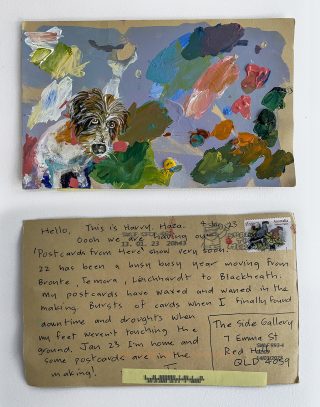 Hello, This is Harry, Haza. 4 Jan 23
Oooh we are having our
'Postcards from Here' show very soon!
22 has been a busy busy year moving from
Bronte, Temora, Leichhardt to Blackheath.
My postcards have waxed and waned in the
making. Bursts of cards when I finally found
downtime and droughts when
my feet weren't touching the
ground. Jan 23 I'm home and
some postcards are in the
making!
The Side Gallery
7 Emma St
Red Hill
QLD 4059
Australia
13 01 23 20h43